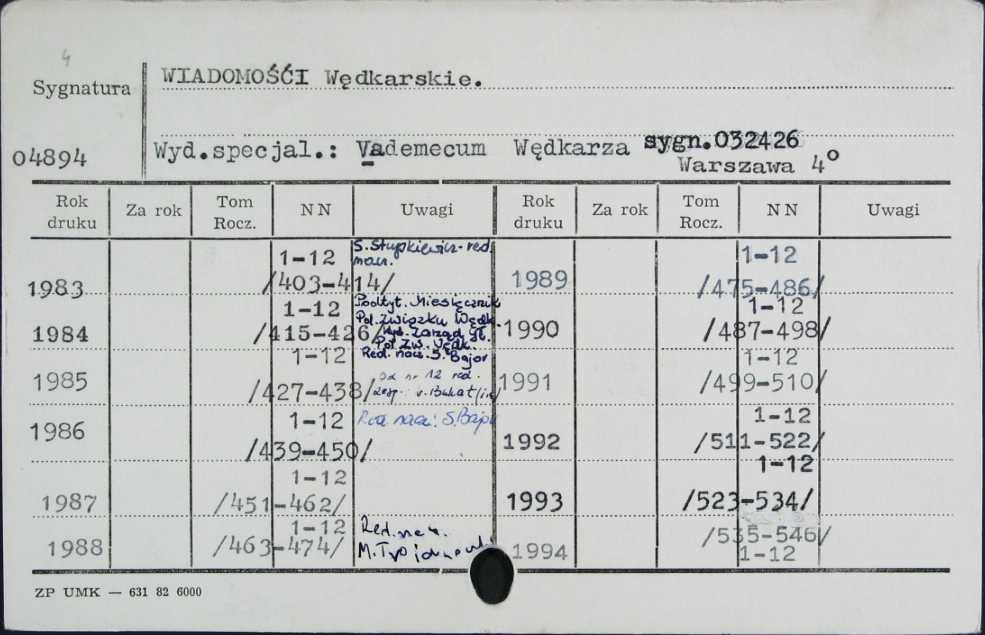 4
Sygnatura
WIADOMOŚĆI Wędkarskie.
04894
Wyd.specjal.: Vademecum Wędkarza sygn.032426
Warszawa 4º
Rok druku Za rok Tom Rocz. NN Uwagi Rok druku Za rok Tom Rocz. NN Uwagi
1983 1-12 /403-414/ S. Stupkiewicz-red. nacz.
1984 1-12 /415-426/ Podtyt. Miesięcznik
Pol. Związku Wędk.
Wyd. Zarząd Gł.
Pol. Zw. Wędk.
1985 1-12 /427-438/ Red. nacz. S. Bajor
od nr 12 red.
1986 1-12 /439-450/ Red. nacz: S. Bajor
1987 1-12 /451-462/
1988 1-12 /463-474/ Red. nacz.
1989 1-12 /475-486/
1990 1-12 /487-498/
1991 1-12 /499-510/
1992 1-12 /511-522/
1993 1-12 /523-534/
1994 /535-546/ 1-12
ZP UMK — 631 82 6000